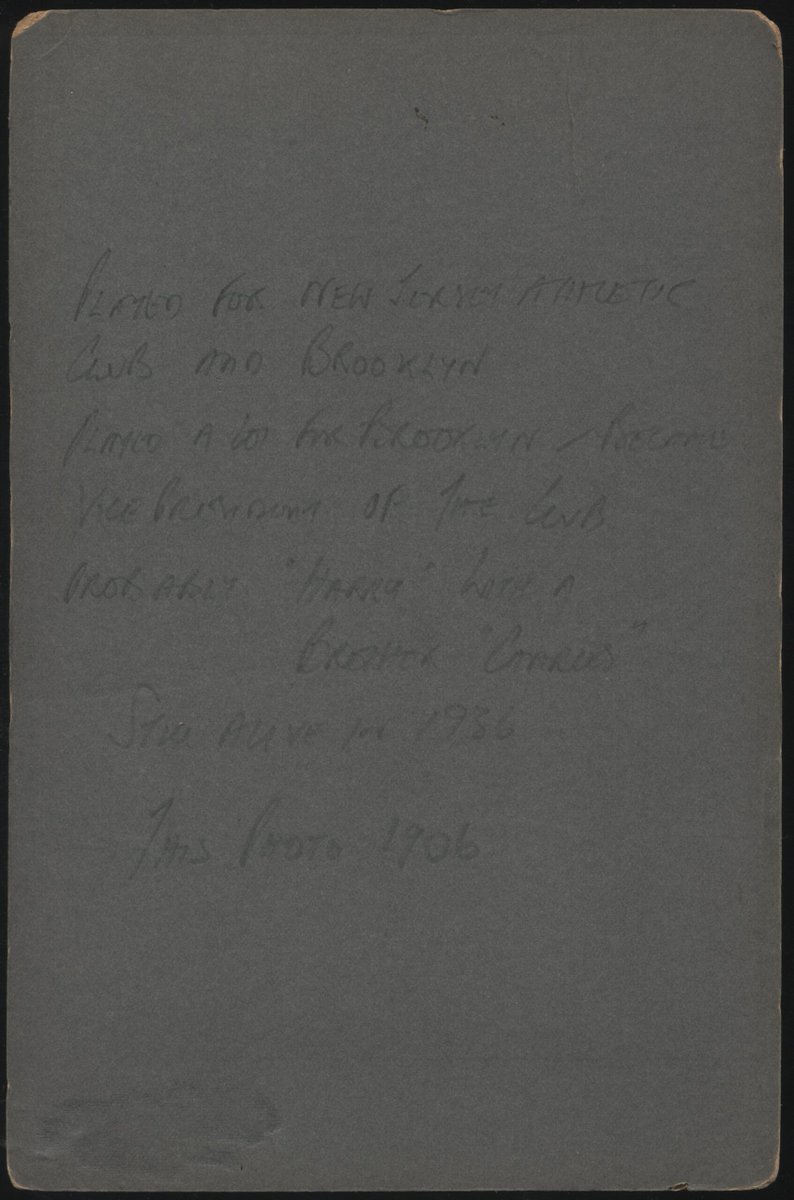 PLAYED FOR NEW JERSEY ATHLETIC
CLUB AND BROOKLYN
PLAYED A LOT FOR BROOKLYN - BECAME
VICE PRESIDENT OF THE CLUB
PROBABLY "HARRY" WITH A
BROTHER "CHARLES"
STILL ALIVE IN 1936
THIS PHOTO 1906